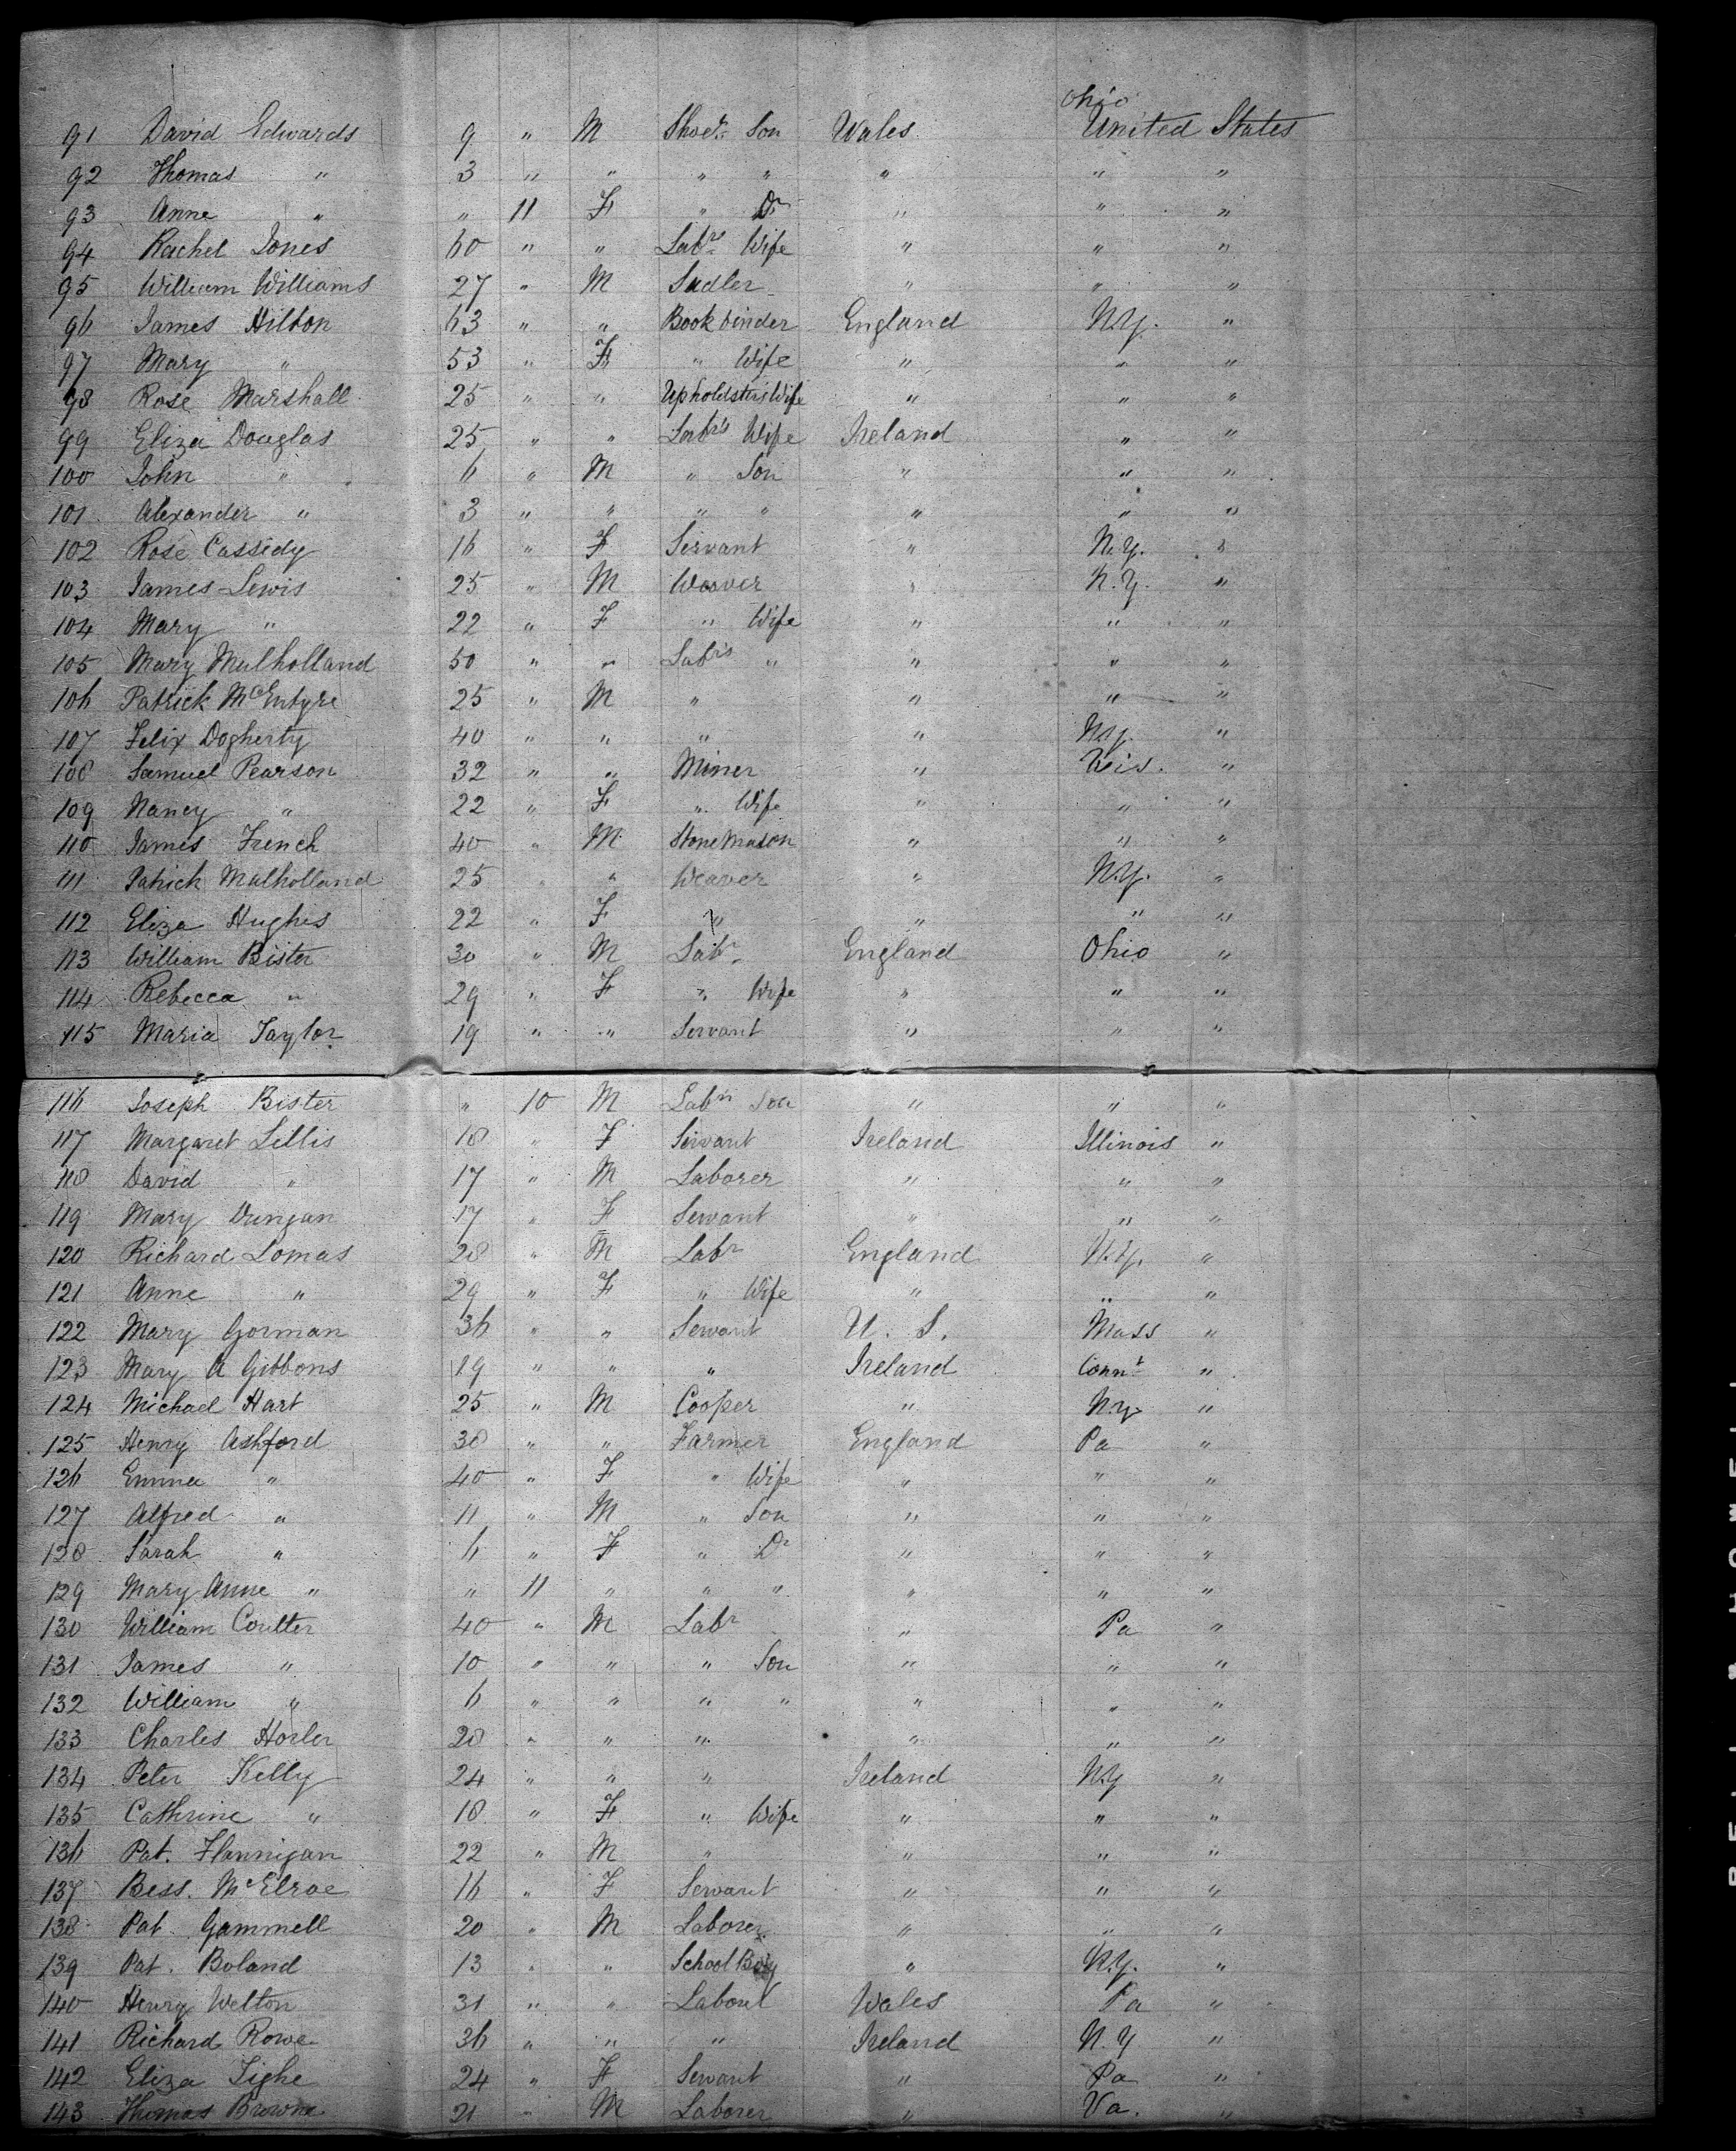 Ohio
91 David Edwards 9 " M Shoer. Son Wales United States
92 Thomas " 3 " " " " " " "
93 Anne " " 11 F " Dr " " "
94 Rachel Jones 60 " " Labrs Wife " " "
95 William Williams 27 " M Sadler " " "
96 James Hilton 63 " " Book binder England N.Y. "
97 Mary " 53 " F " Wife " " "
98 Rose Marshall 25 " " Upholstrs Wife " " "
99 Eliza Douglas 25 " " Labrs Wife Ireland " "
100 John " 6 " M " Son " " "
101 Alexander " 3 " " " " " " "
102 Rose Cassidy 16 " F Servant " N.Y. "
103 James Lewis 25 " M Weaver " N.Y. "
104 Mary " 22 " F " Wife " " "
105 Mary Mulholland 50 " " Labrs " " " "
106 Patrick McEntyre 25 " M " " " "
107 Felix Dogherty 40 " " " " N.Y. "
108 Samuel Pearson 32 " " Miner " Wis. "
109 Nancy " 22 " F " Wife " " "
110 James French 40 " M Stone Mason " " "
111 Patrick Mulholland 25 " " Weaver " N.Y. "
112 Eliza Hughes 22 " F " " " "
113 William Bister 30 " M Labr. England Ohio "
114 Rebecca " 29 " F " Wife " " "
115 Maria Taylor 19 " " Servant " " "
116 Joseph Bister " 10 M Labrs Son " " "
117 Margaret Lillis 18 " F Servant Ireland Illinois "
118 David " 17 " M Laborer " " "
119 Mary Dungan 17 " F Servant " " "
120 Richard Lomas 28 " M Labr England N.Y. "
121 Anne " 29 " F " Wife " " "
122 Mary Gorman 36 " " Servant U. S. Mass "
123 Mary A Gibbons 19 " " " Ireland Connt "
124 Michael Hart 25 " M Cooper " N.Y. "
125 Henry Ashford 38 " " Farmer England Pa "
126 Emma " 40 " F " Wife " " "
127 Alfred " 11 " M " Son " " "
128 Sarah " 6 " F " Dr " " "
129 Mary Anne " " 11 " " " " " "
130 William Coulter 40 " M Labr " Pa "
131 James " 10 " " " Son " " "
132 William " 6 " " " " " " "
133 Charles Horler 28 " " " " " "
134 Peter Kelly 24 " " " Ireland N.Y "
135 Cathrine " 18 " F " Wife " " "
136 Pat. Flannigan 22 " M " " " "
137 Bess. McElroe 16 " F Servant " " "
138 Pat. Gammell 20 " M Laborer " " "
139 Pat. Boland 13 " " School Boy " N.Y. "
140 Henry Welton 31 " " Labourer Wales Pa "
141 Richard Rowe 36 " " " Ireland N.Y "
142 Eliza Tighe 24 " F Servant " Pa "
143 Thomas Browne 21 " M Laborer " Va. "